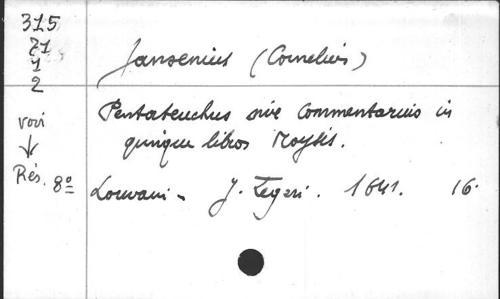 315
71
1
2
Jansenius (Cornelius)
Pentateuchus sive Commentarius in
quinque libros Moysis.
voir
↓
Rés. 8º Louvani - J. Zegeri. 1641. 16.